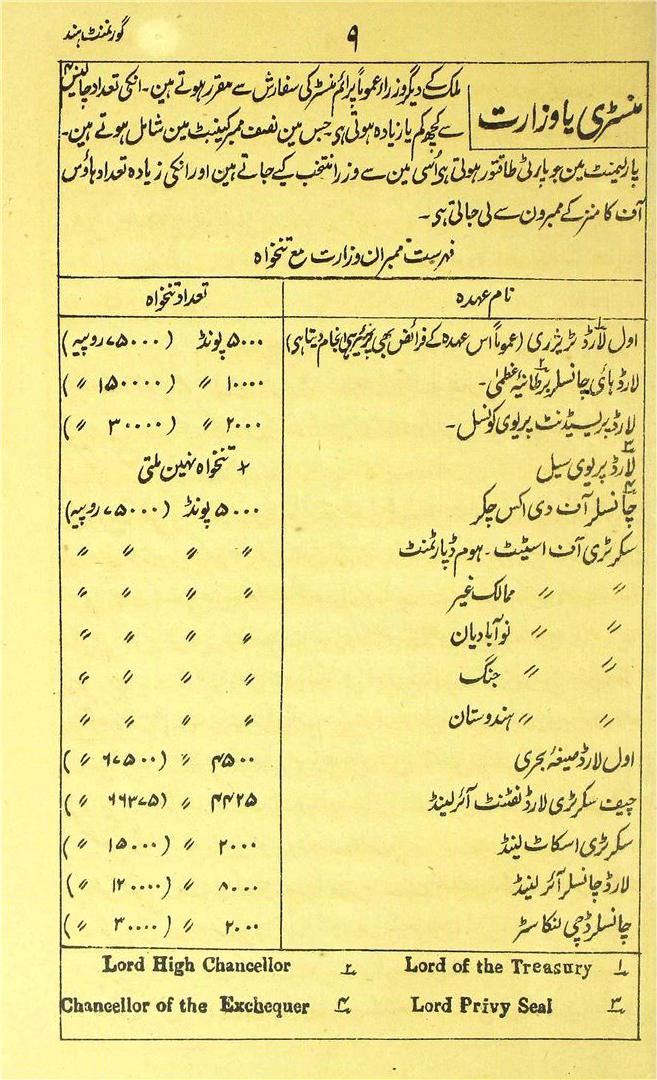 گورنمنٹ ہند
۹
منسٹری یا وزارت
ملک کے دیگر وزرا عموماً پرائم منسٹر کی سفارش سے مقرر ہوتے ہین۔ انکی تعداد چالیس
سے کچھ کم یا زیادہ ہوتی ہی جس مین نصف ممبر کیبنٹ مین شامل ہوتے ہین۔
پارلیمنٹ مین جو پارٹی طاقتور ہوتی ہی اُسی مین سے وزرا منتخب کیے جاتے ہین اور انکی زیادہ تعداد ہاؤس
آف کامنز کے ممبرون سے لی جاتی ہی۔
فہرست ممبران وزارت مع تنخواہ
نام عہدہ تعداد تنخواہ
اول لارڈ ٹریژری (عموماً اس عہدہ کے فرائض بھی پریمیر ہی انجام دیتا ہی) ۵۰۰۰ پونڈ (۷۵۰۰۰ روپیہ)
لارڈ ہائی چانسلر برطانیۂ عظمیٰ۔ ۱۰۰۰۰ ״ (۱۵۰۰۰۰ ״)
لارڈ پریسیڈنٹ پریوی کونسل۔ ۲۰۰۰ ״ (۳۰۰۰۰ ״)
لارڈ پریوی سیل × تنخواہ نہین ملتی
چانسلر آف دی اکس چکر ۵۰۰۰ پونڈ (۷۵۰۰۰ روپیہ)
سکرٹری آف اسٹیٹ۔ ہوم ڈپارٹمنٹ ״ ״ ״ ״
״ ״ ممالک غیر ״ ״ ״ ״
״ ״ نوآبادیان ״ ״ ״ ״
״ ״ جنگ ״ ״ ״ ״
״ ״ ہندوستان ״ ״ ״ ״
اول لارڈ صیغۂ بحری ۴۵۰۰ ״ (۶۷۵۰۰ ״)
چیف سکرٹری لارڈ لفٹنٹ آئرلینڈ ۴۴۲۵ ״ (۶۶۳۷۵ ״)
سکرٹری اسکاٹ لینڈ ۲۰۰۰ ״ (۱۵۰۰۰ ״)
لارڈ چانسلر آئرلینڈ ۸۰۰۰ ״ (۱۲۰۰۰۰ ״)
چانسلر ڈچی لنکاسٹر ۲۰۰۰ ״ (۳۰۰۰۰ ״)
۱ Lord of the Treasury ۲ Lord High Chancellor
۳ Lord Privy Seal ۴ Chancellor of the Exchequer